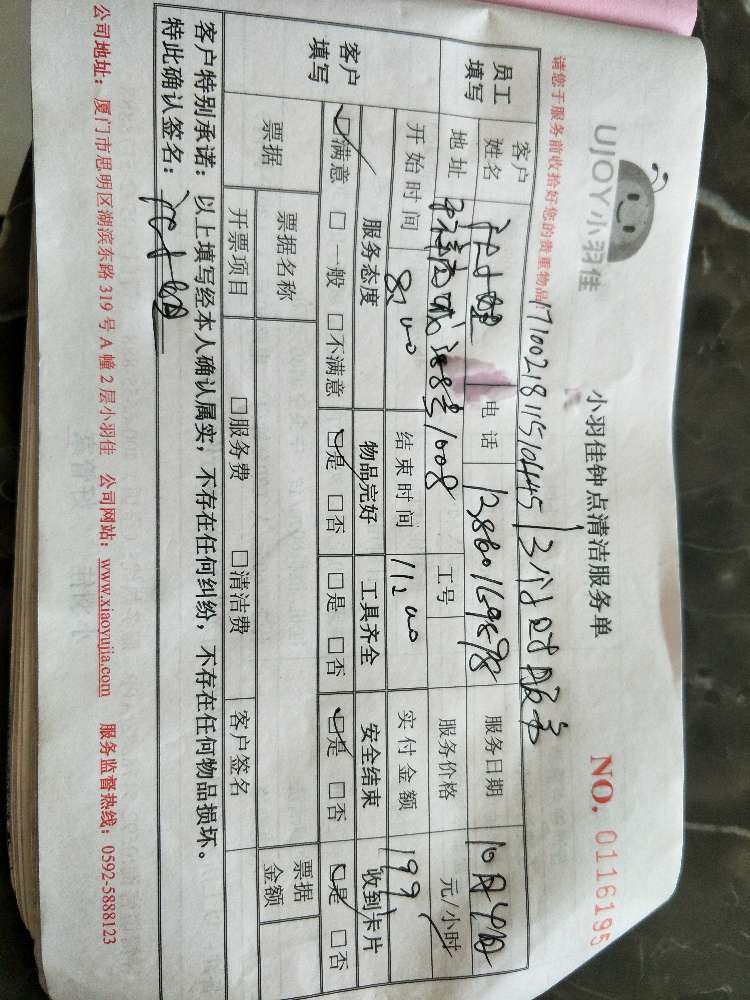 UJOY小羽佳
小羽佳钟点清洁服务单
NO. 0116195
请您于服务前收拾好您的贵重物品!
3个小时服务
员工填写
客户姓名
电话 13860169898
服务日期 10月4日
地址
工号
服务价格 元/小时
开始时间 8:00
结束时间 11:00
实付金额 199
客户填写
服务态度 物品完好 工具齐全 安全结束 收到卡片
☑满意 □一般 □不满意 ☑是 □否 □是 □否 ☑是 □否 ☑是 □否
票据
票据名称
票据金额
开票项目 □服务费 □清洁费 客户签名
客户特别承诺:以上填写经本人确认属实,不存在任何纠纷,不存在任何物品损坏。
特此确认签名:
公司地址:厦门市思明区湖滨东路319号A幢2层小羽佳 公司网站:www.xiaoyujia.com 服务监督热线:0592-5888123